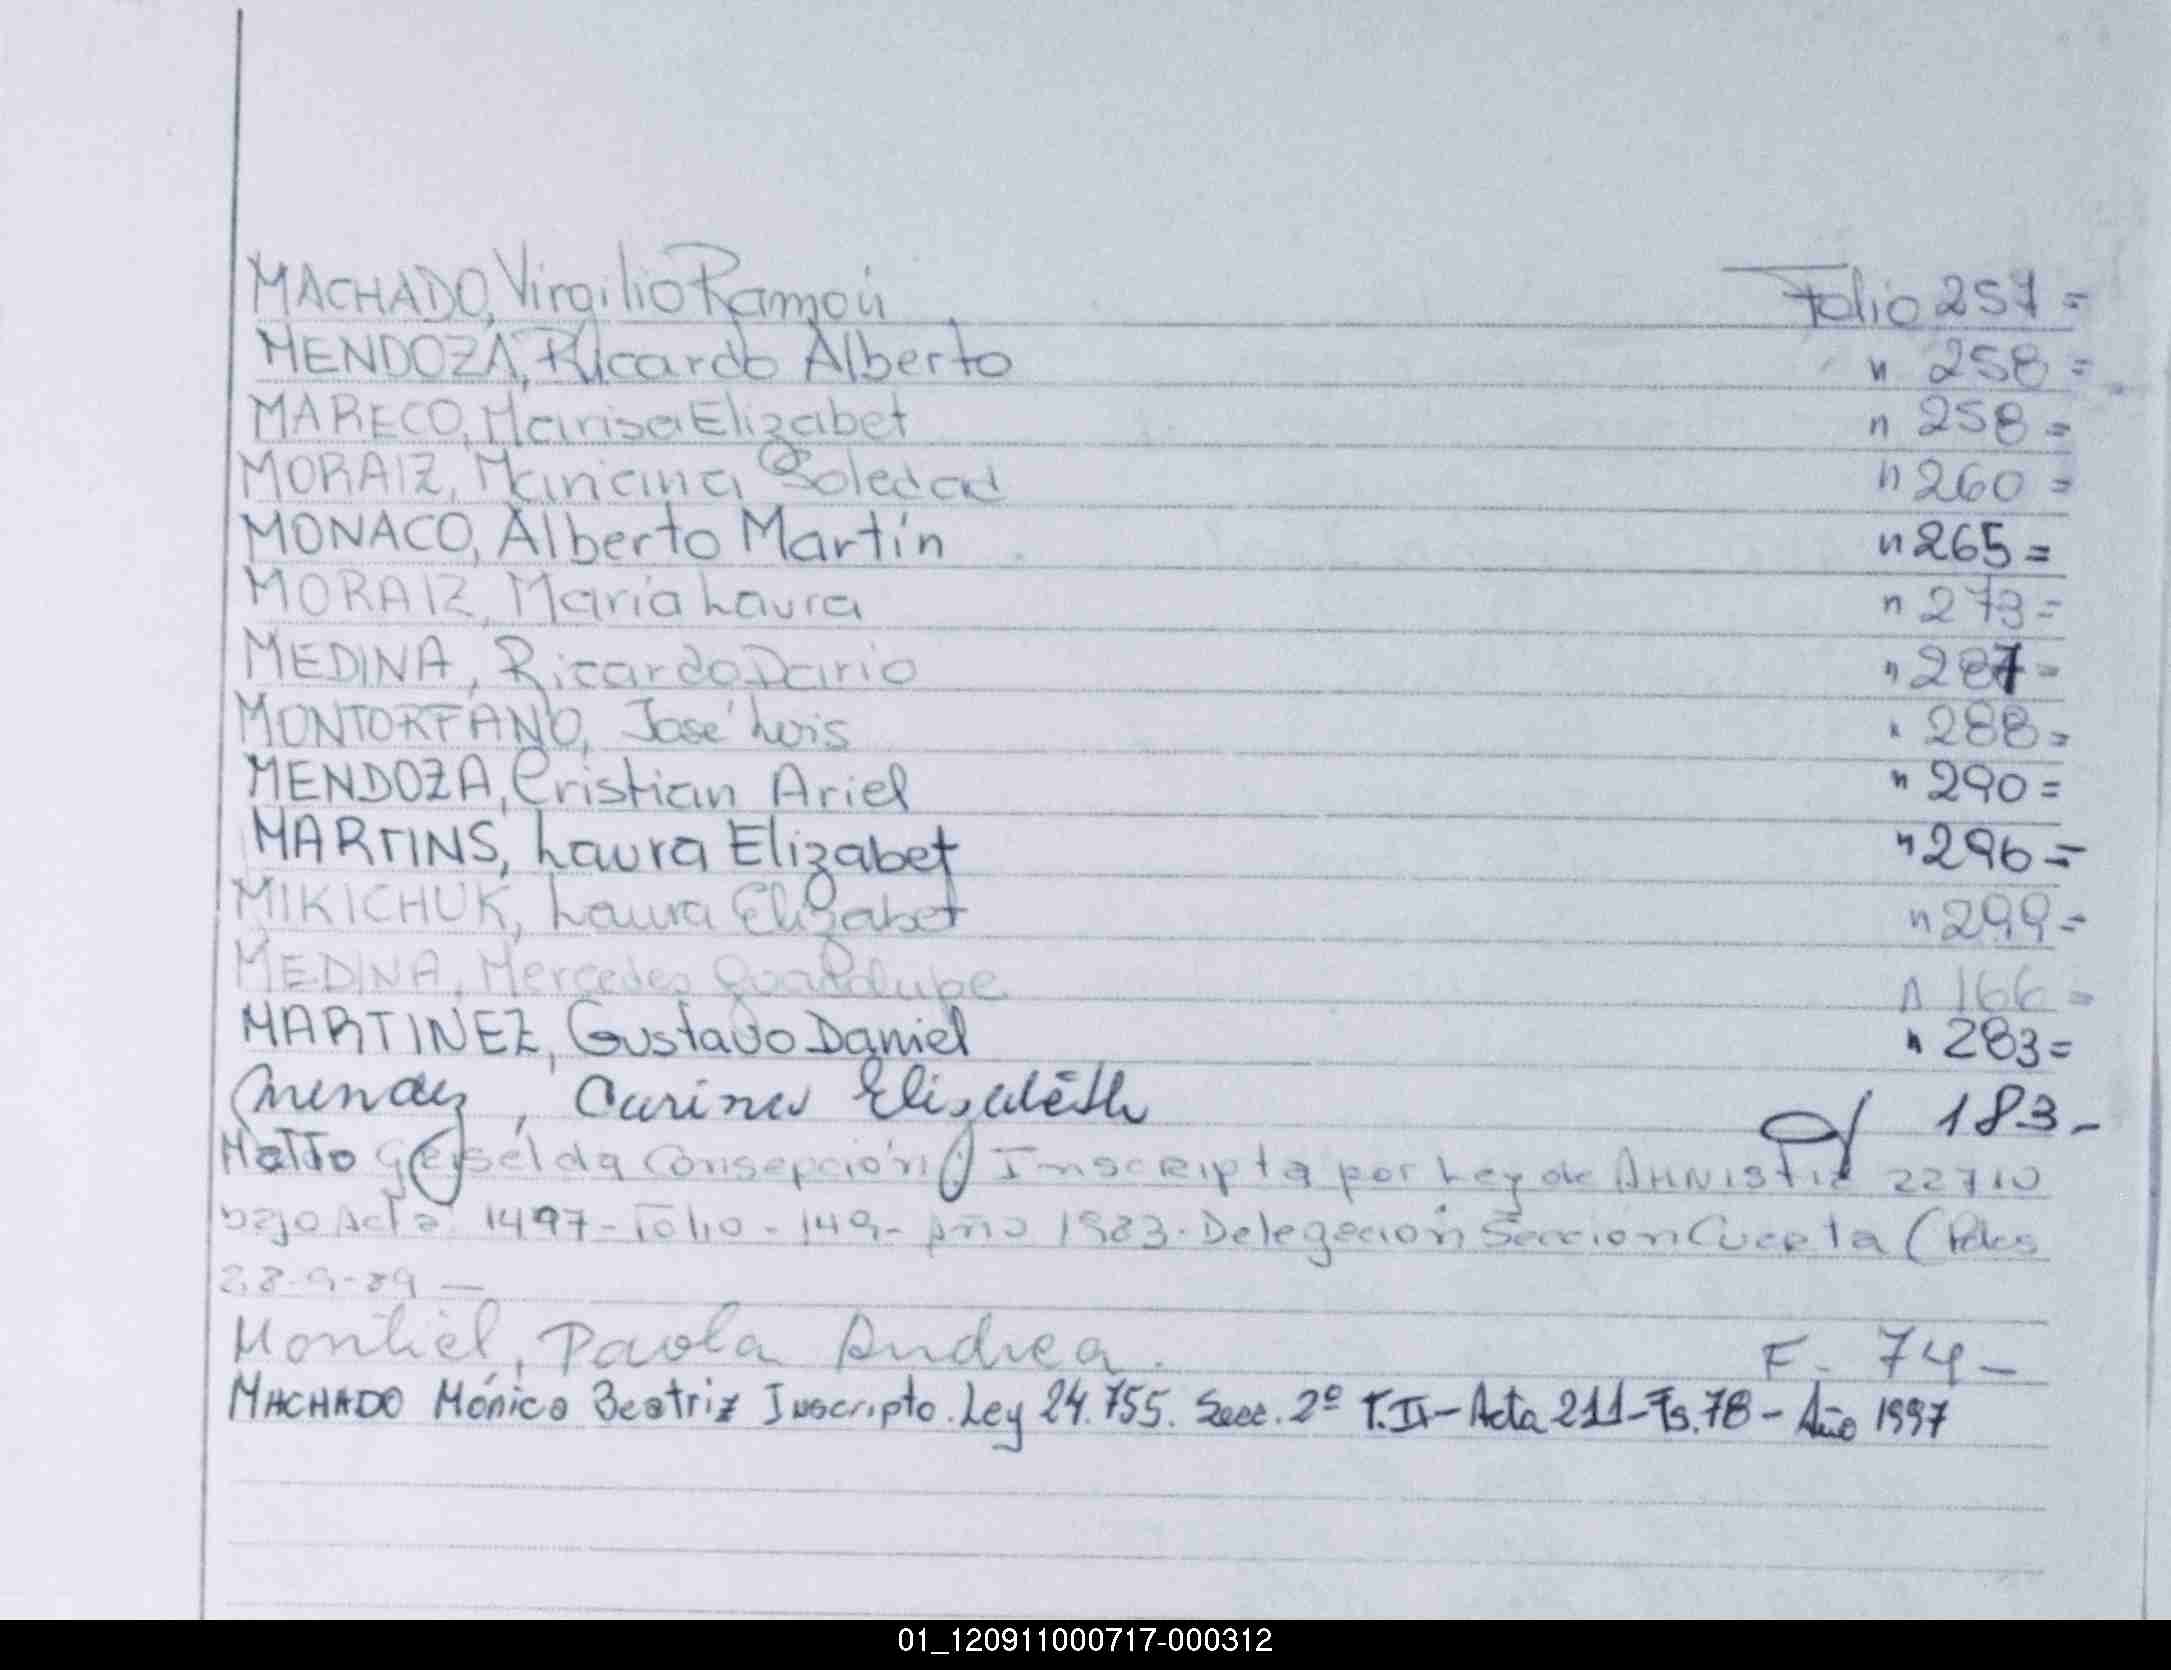 MACHADO, Virgilio Ramón Folio 257=
MENDOZA, Ricardo Alberto " 258=
MARECO, Marisa Elizabet " 258=
MORAIZ, Mariana Soledad " 260=
MONACO, Alberto Martín " 265=
MORAIZ, María Laura " 273=
MEDINA, Ricardo Dario " 287=
MONTORFANO, José Luis " 288=
MENDOZA, Cristian Ariel " 290=
MARTINS, Laura Elizabet " 296=
MIKICHUK, Laura Elizabet " 299=
MEDINA, Mercedes Guadalupe " 166=
MARTINEZ, Gustavo Daniel " 283=
Mendez, Carina Elizabeth 183-
Matto Geiselda Consepción () Inscripta por Ley de AMNistia 22710
bajo Acta 1497- Folio - 149- Año 1983. Delegación Seccion Cuarta (Pdas
28-9-89 —
Montiel, Paola Andrea. F. 74-
MACHADO Mónica Beatriz Inscripto. Ley 24.755. Secc. 2º T. II- Acta 211- Fs. 78- Año 1997
01_120911000717-000312